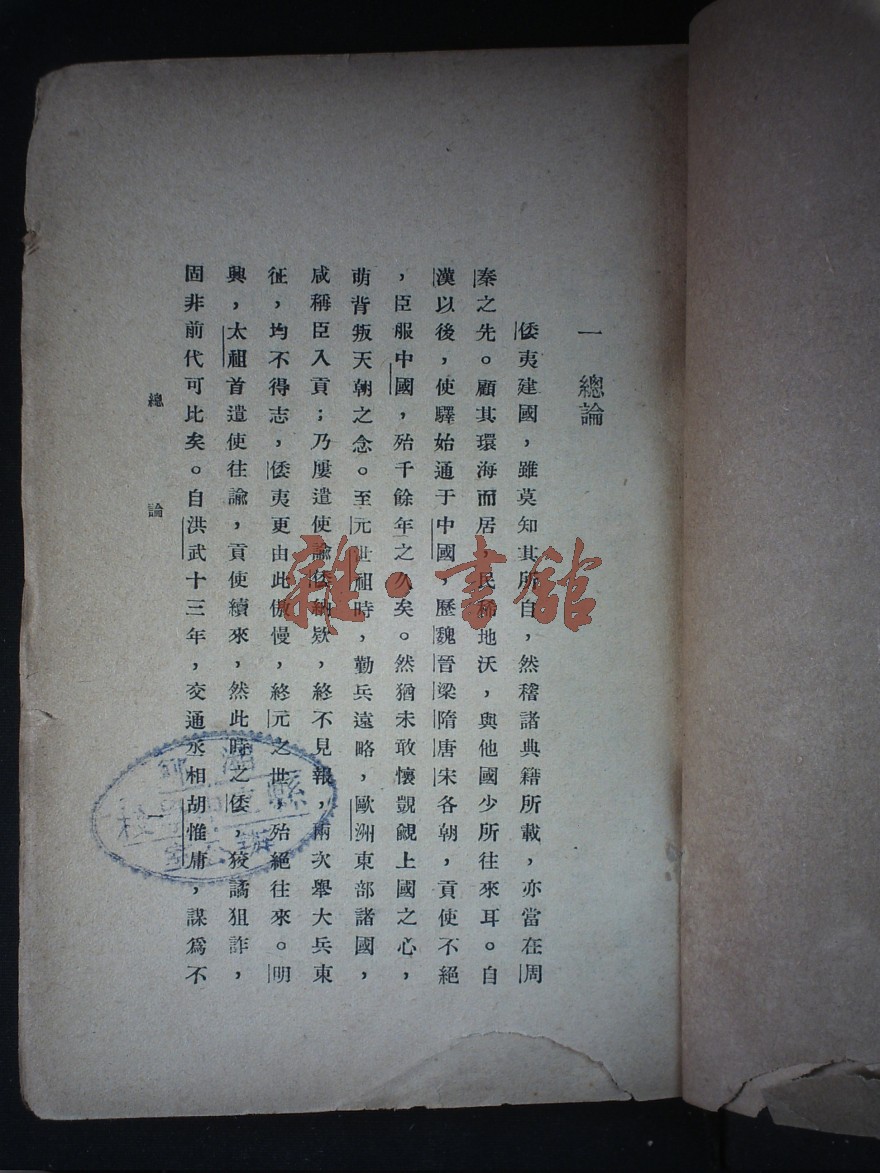 一 總論
倭夷建國，雖莫知其所自，然稽諸典籍所載，亦當在周
秦之先。顧其環海而居，民稀地沃，與他國少所往來耳。自
漢以後，使驛始通于中國，歷魏晉梁隋唐宋各朝，貢使不絕
，臣服中國，殆千餘年之久矣。然猶未敢懷覬覦上國之心，
萌背叛天朝之念。至元世祖時，勤兵遠略，歐洲東部諸國，
咸稱臣入貢；乃屢遣使諭倭納欵，終不見報，兩次舉大兵東
征，均不得志，倭夷更由此傲慢，終元之世，殆絕往來。明
興，太祖首遣使往諭，貢使續來，然此時之倭，狡譎狙詐，
固非前代可比矣。自洪武十三年，交通丞相胡惟庸，謀爲不
總 論
一
雜·書館